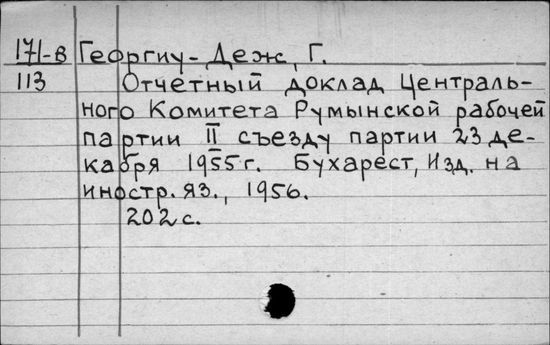 171-в Георгиу-Деж, Г.
113 Отчетный доклад Централь-
ного Комитета Румынской рабочей
партии II съезду партии 23 де-
кабря 1955 г. Бухарест, Изд. на
иностр. яз., 1956.
202 с.